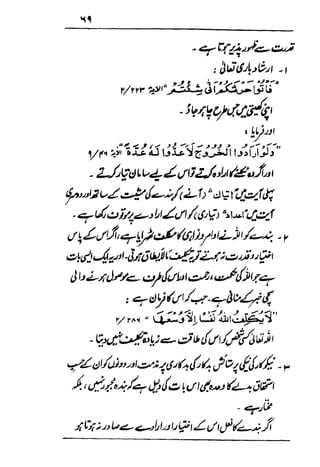 ۶۹
قدرت سے ظہور پذیر ہوتا ہے ۔
۱۔ ارشاد باری تعالیٰ :
" فَأْتُوا حَرْثَكُمْ أَنَّىٰ شِئْتُمْ " الآیۃ ۲/۲۲۳
اپنی کھیتی میں جس طرح چاہو جاؤ ۔
اور فرمایا :
" وَلَوْ أَرَادُوا الْخُرُوجَ لَأَعَدُّوا لَهُ عُدَّةً " الآیۃ ۹/۴۶
اور اگر وہ نکلنے کا ارادہ کرتے تو اس کے لیے سامان تیار کرتے ۔
پہلی آیت میں " اتیان " (آنے) کو بندے کی مشیت کے ساتھ اور دوسری
آیت میں " اعداد " (تیاری) کو اس کے ارادے پر موقوف رکھا ہے ۔
۲۔ بندے کو اللہ نے اوامر و نواہی کا مکلف ٹھہرایا ہے، اگر اس کے پاس
اختیار و قدرت نہ ہوتے تو یہ تکلیف مالایطاق ہوتی ۔ اور یہ ایک ایسی بات
ہے جو اللہ کی حکمت ، رحمت اور اس کی طرف سے موصول ہونے والی
سچی خبر کے منافی ہے ۔ جب کہ اس کا فرمان ہے :
" لَا يُكَلِّفُ اللهُ نَفْسًا إِلَّا وُسْعَهَا " ۲/۲۸۶
اللہ تعالیٰ کسی شخص کو اس کی طاقت سے زیادہ تکلیف نہیں دیتا ۔
۳۔ نیکوکار کی نیکی پر ستائش بدکار کی بدکاری پر مذمت اور دونوں کو ان کے حسب
استحقاق بدلے کا وعدہ بھی اس بات کی دلیل ہے کہ بندہ مجبور نہیں ، بلکہ
مختار ہے ۔
اگر بندے کا فعل اس کے اختیار اور ارادے سے صادر نہ ہوتا ہو